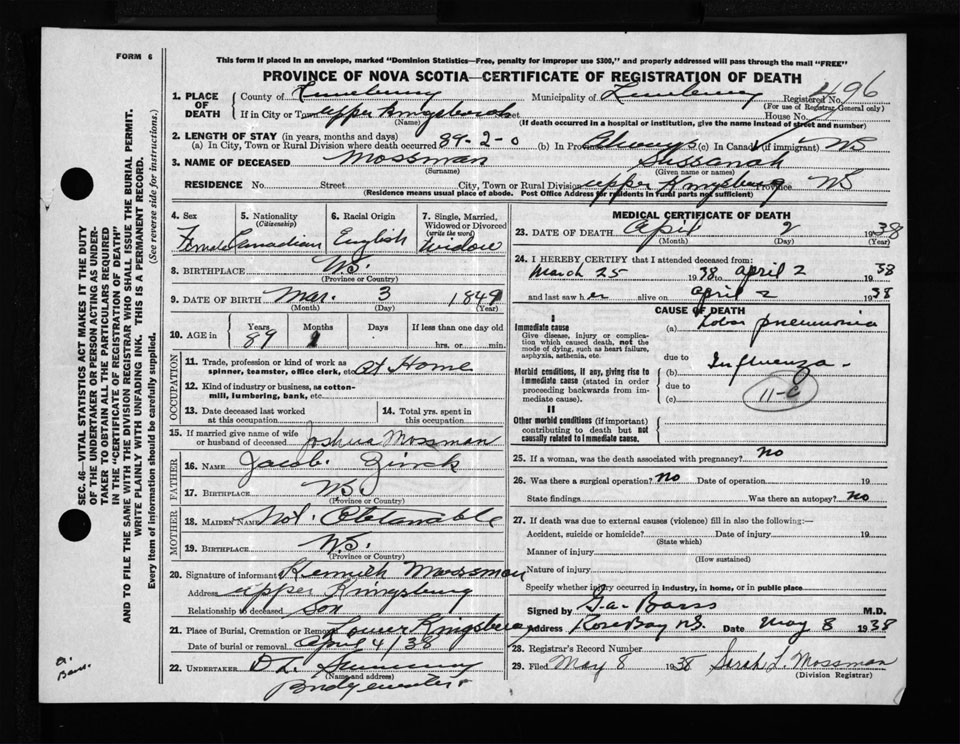 FORM 6
This form if placed in an envelope, marked "Dominion Statistics—Free, penalty for improper use $300," and properly addressed will pass through the mail "FREE"
PROVINCE OF NOVA SCOTIA—CERTIFICATE OF REGISTRATION OF DEATH
1. PLACE OF DEATH County of Lunenburg Municipality of Lunenburg Registered No. 496
(For use of Registrar General only)
If in City or Town Upper Kingsburg Street House No.
(Name) (If death occurred in a hospital or institution, give the name instead of street and number)
2. LENGTH OF STAY (in years, months and days)
(a) In City, Town or Rural Division where death occurred 89-2-0 (b) In Province Always (c) In Canada (if immigrant) NS
3. NAME OF DECEASED Mossman Sussanah
(Surname) (Given name or names)
RESIDENCE No. Street City, Town or Rural Division Upper Kingsburg Province NS
(Residence means usual place of abode. Post Office Address for residents in rural parts not sufficient)
4. Sex Female
5. Nationality (Citizenship) Canadian
6. Racial Origin English
7. Single, Married, Widowed or Divorced (write the word) Widow
8. BIRTHPLACE N.S.
(Province or Country)
9. DATE OF BIRTH Mar. 3 1849
(Month) (Day) (Year)
10. AGE in Years 89 Months 1 Days If less than one day old
hrs. or min.
OCCUPATION
11. Trade, profession or kind of work as spinner, teamster, office clerk, etc. at Home
12. Kind of industry or business, as cotton-mill, lumbering, bank, etc.
13. Date deceased last worked at this occupation
14. Total yrs. spent in this occupation
15. If married give name of wife or husband of deceased Joshua Mossman
FATHER
16. NAME Jacob Zinck
17. BIRTHPLACE N.S.
(Province or Country)
MOTHER
18. MAIDEN NAME Not Obtainable
19. BIRTHPLACE N.S.
(Province or Country)
20. Signature of informant Kenneth Mossman
Address Upper Kingsburg
Relationship to deceased Son
21. Place of Burial, Cremation or Removal Lower Kingsburg
Date of burial or removal April 4/38
22. UNDERTAKER
(Name and address)
Bridgewater
MEDICAL CERTIFICATE OF DEATH
23. DATE OF DEATH April 2 1938
(Month) (Day) (Year)
24. I HEREBY CERTIFY that I attended deceased from:
March 25 1938 to April 2 1938
and last saw her alive on April 2 1938
CAUSE OF DEATH
I
Immediate cause
Give disease, injury or complication which caused death, not the mode of dying, such as heart failure, asphyxia, asthenia, etc.
(a) Lobar pneumonia
due to
Morbid conditions, if any, giving rise to immediate cause (stated in order proceeding backwards from immediate cause).
(b) Influenza
due to
(c) 11-C
II
Other morbid conditions (if important) contributing to death but not causally related to immediate cause.
25. If a woman, was the death associated with pregnancy? No
26. Was there a surgical operation? No Date of operation 19
State findings Was there an autopsy? No
27. If death was due to external causes (violence) fill in also the following:—
Accident, suicide or homicide? Date of injury 19
(State which)
Manner of injury
(How sustained)
Nature of injury
Specify whether injury occurred in industry, in home, or in public place
Signed by G.A. Barss M.D.
Address Rose Bay N.S. Date May 8 1938
28. Registrar's Record Number
29. Filed May 8 1938 Sarah L. Mossman
(Division Registrar)
SEC. 46—VITAL STATISTICS ACT MAKES IT THE DUTY
OF THE UNDERTAKER OR PERSON ACTING AS UNDERTAKER TO OBTAIN ALL THE PARTICULARS REQUIRED
IN THE "CERTIFICATE OF REGISTRATION OF DEATH"
AND TO FILE THE SAME WITH THE DIVISION REGISTRAR WHO SHALL ISSUE THE BURIAL PERMIT.
WRITE PLAINLY WITH UNFADING INK. THIS IS A PERMANENT RECORD.
Every item of information should be carefully supplied. (See reverse side for instructions.)